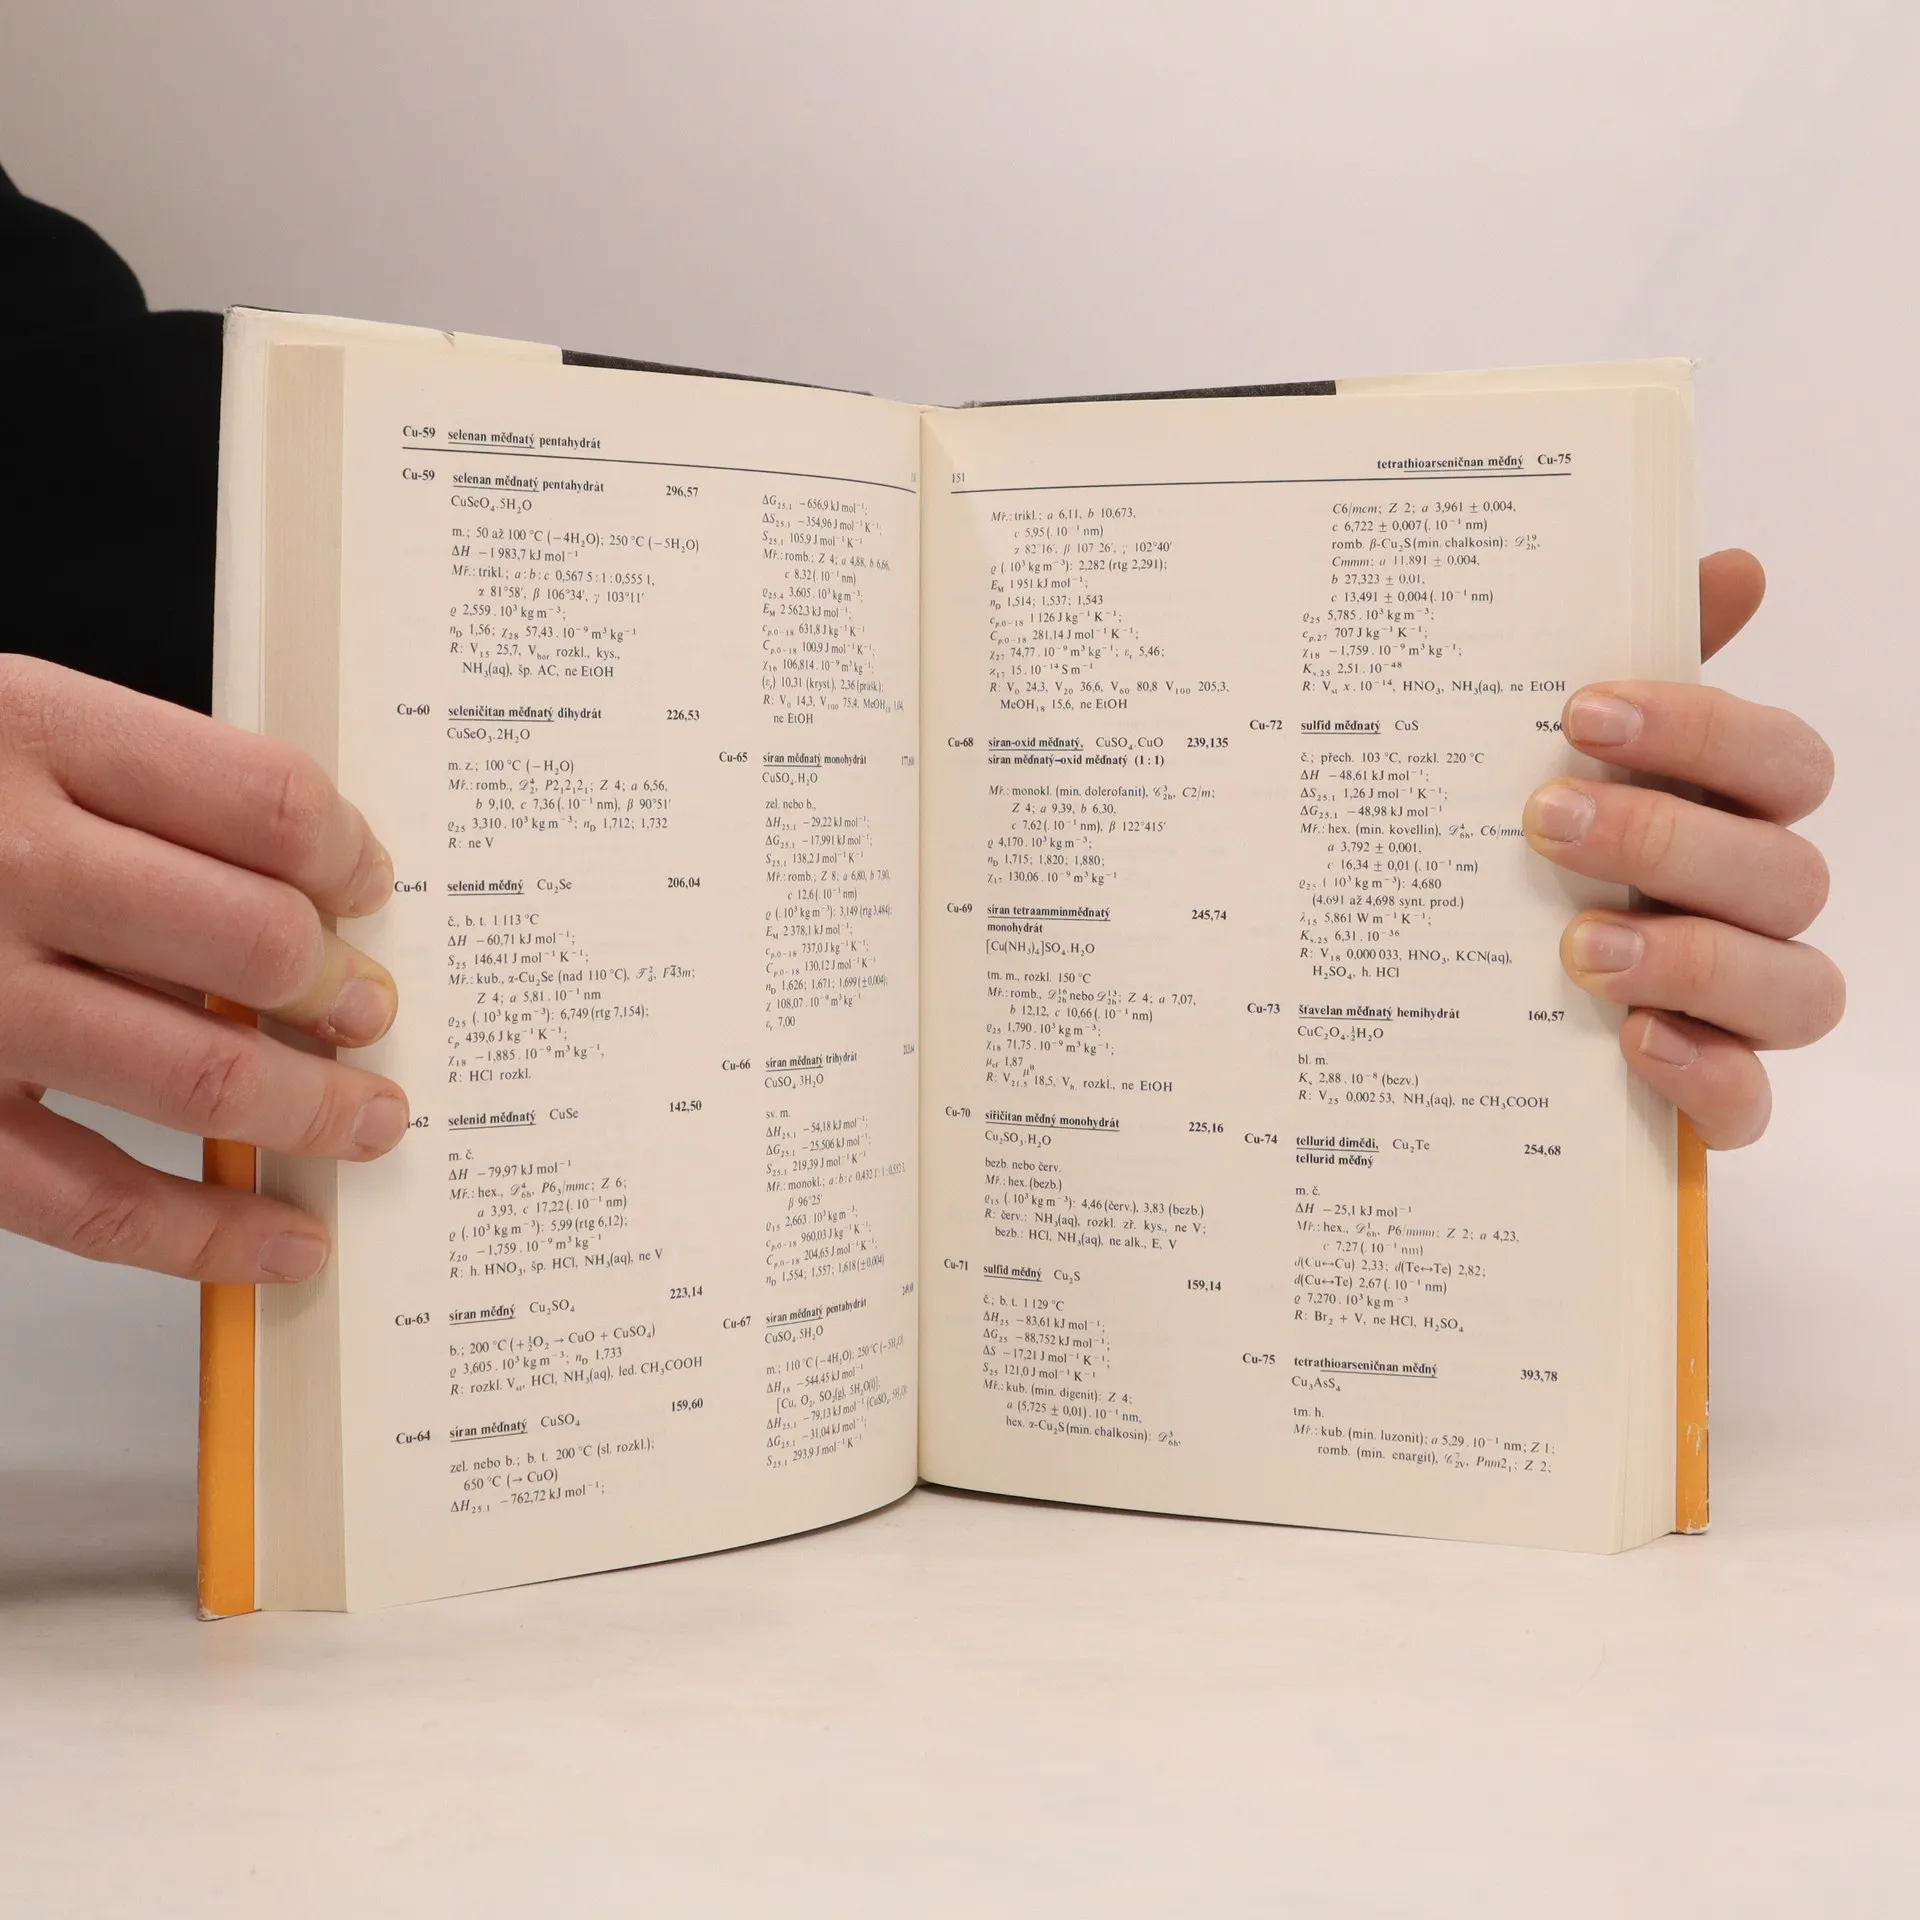 Cu-59 selenan měďnatý pentahydrát
Cu-59 selenan měďnatý pentahydrát 296,57
CuSeO₄.5H₂O
m.; 50 až 100 °C (−4H₂O); 250 °C (−5H₂O)
ΔH −1 983,7 kJ mol⁻¹
Mř.: trikl.; a:b:c 0,567 5 : 1 : 0,555 1,
α 81°58′, β 106°34′, γ 103°11′
ϱ 2,559 . 10³ kg m⁻³;
n_D 1,56; χ₂₈ 57,43 . 10⁻⁹ m³ kg⁻¹
R: V₁₅ 25,7, V_hor rozkl., kys.,
NH₃(aq), šp. AC, ne EtOH
Cu-60 seleničitan měďnatý dihydrát 226,53
CuSeO₃.2H₂O
m. z.; 100 °C (−H₂O)
Mř.: romb., 𝒟₂⁴, P2₁2₁2₁; Z 4; a 6,56,
b 9,10, c 7,36 (. 10⁻¹ nm), β 90°51′
ϱ₂₅ 3,310 . 10³ kg m⁻³; n_D 1,712; 1,732
R: ne V
Cu-61 selenid měďný Cu₂Se 206,04
č., b. t. 1 113 °C
ΔH −60,71 kJ mol⁻¹;
S₂₅ 146,41 J mol⁻¹ K⁻¹;
Mř.: kub., α-Cu₂Se (nad 110 °C), 𝒯_d², F4̄3m;
Z 4; a 5,81 . 10⁻¹ nm
ϱ₂₅ (. 10³ kg m⁻³): 6,749 (rtg 7,154);
c_p 439,6 J kg⁻¹ K⁻¹;
χ₁₈ −1,885 . 10⁻⁹ m³ kg⁻¹,
R: HCl rozkl.
-62 selenid měďnatý CuSe 142,50
m. č.
ΔH −79,97 kJ mol⁻¹
Mř.: hex., 𝒟₆ₕ⁴, P6₃/mmc; Z 6;
a 3,93, c 17,22 (. 10⁻¹ nm)
ϱ (. 10³ kg m⁻³): 5,99 (rtg 6,12);
χ₂₀ −1,759 . 10⁻⁹ m³ kg⁻¹
R: h. HNO₃, šp. HCl, NH₃(aq), ne V
Cu-63 síran měďný Cu₂SO₄ 223,14
b.; 200 °C (+½O₂ → CuO + CuSO₄)
ϱ 3,605 . 10³ kg m⁻³; n_D 1,733
R: rozkl. V_st, HCl, NH₃(aq), led. CH₃COOH
Cu-64 síran měďnatý CuSO₄ 159,60
zel. nebo b.; b. t. 200 °C (sl. rozkl.);
650 °C (→ CuO)
ΔH₂₅.₁ −762,72 kJ mol⁻¹;
ΔG₂₅.₁ −656,9 kJ mol⁻¹;
ΔS₂₅.₁ −354,96 J mol⁻¹ K⁻¹;
S₂₅.₁ 105,9 J mol⁻¹ K⁻¹
Mř.: romb.; Z 4; a 4,88, b 6,66,
c 8,32 (. 10⁻¹ nm)
ϱ₂₅.₄ 3,605 . 10³ kg m⁻³;
E_M 2 562,3 kJ mol⁻¹;
c_p,0−18 631,8 J kg⁻¹ K⁻¹
C_p,0−18 100,9 J mol⁻¹ K⁻¹;
χ₁₆ 106,814 . 10⁻⁹ m³ kg⁻¹;
(ε_r) 10,31 (kryst.), 2,36 (prášk.);
R: V₀ 14,3, V₁₀₀ 75,4, MeOH₁₈ 1,04,
ne EtOH
Cu-65 síran měďnatý monohydrát
CuSO₄.H₂O
zel. nebo b.,
ΔH₂₅.₁ −29,22 kJ mol⁻¹;
ΔG₂₅.₁ −17,991 kJ mol⁻¹;
S₂₅.₁ 138,2 J mol⁻¹ K⁻¹
Mř.: romb.; Z 8; a 6,80, b 7,90,
c 12,6 (. 10⁻¹ nm)
ϱ (. 10³ kg m⁻³): 3,149 (rtg 3,484);
E_M 2 378,1 kJ mol⁻¹;
c_p,0−18 737,0 J kg⁻¹ K⁻¹;
C_p,0−18 130,12 J mol⁻¹ K⁻¹
n_D 1,626; 1,671; 1,699 (±0,004);
χ 108,07 . 10⁻⁹ m³ kg⁻¹
ε_r 7,00
Cu-66 síran měďnatý trihydrát
CuSO₄.3H₂O
sv. m.
ΔH₂₅.₁ −54,18 kJ mol⁻¹;
ΔG₂₅.₁ −25,506 kJ mol⁻¹;
S₂₅.₁ 219,39 J mol⁻¹ K⁻¹
Mř.: monokl.; a:b:c
β 96°25′
ϱ₁₅ 2,663 . 10³ kg m⁻³;
c_p,0−18 960,03 J kg⁻¹ K⁻¹;
C_p,0−18 204,65 J mol⁻¹ K⁻¹;
n_D 1,554; 1,557; 1,618 (±0,004)
Cu-67 síran měďnatý pentahydrát
CuSO₄.5H₂O
m.; 110 °C (−4H₂O); 250 °C (−5H₂O)
ΔH₁₈ −544,45 kJ mol⁻¹
[Cu, O₂, SO₂(g), 5H₂O(l)];
ΔH₂₅.₁ −79,13 kJ mol⁻¹ (CuSO₄, 5H₂O)
ΔG₂₅.₁ −31,04 kJ mol⁻¹;
S₂₅.₁ 293,9 J mol⁻¹ K⁻¹
151 tetrathioarseničnan měďný Cu-75
Mř.: trikl.; a 6,11, b 10,673,
c 5,95 (. 10⁻¹ nm)
α 82°16′, β 107°26′, γ 102°40′
ϱ (. 10³ kg m⁻³): 2,282 (rtg 2,291);
E_M 1 951 kJ mol⁻¹;
n_D 1,514; 1,537; 1,543
c_p,0−18 1 126 J kg⁻¹ K⁻¹;
C_p,0−18 281,14 J mol⁻¹ K⁻¹;
χ₂₇ 74,77 . 10⁻⁹ m³ kg⁻¹; ε_r 5,46;
χ₁₇ 15 . 10⁻¹⁴ S m⁻¹
R: V₀ 24,3, V₂₀ 36,6, V₆₀ 80,8 V₁₀₀ 205,3,
MeOH₁₈ 15,6, ne EtOH
Cu-68 síran-oxid měďnatý, CuSO₄.CuO 239,135
síran měďnatý–oxid měďnatý (1 : 1)
Mř.: monokl. (min. dolerofanit), 𝒞₂ₕ³, C2/m;
Z 4; a 9,39, b 6,30,
c 7,62 (. 10⁻¹ nm), β 122°415′
ϱ 4,170 . 10³ kg m⁻³;
n_D 1,715; 1,820; 1,880;
χ₁₇ 130,06 . 10⁻⁹ m³ kg⁻¹
Cu-69 síran tetraamminměďnatý 245,74
monohydrát
[Cu(NH₃)₄]SO₄.H₂O
tm. m., rozkl. 150 °C
Mř.: romb., 𝒟₂ₕ¹⁶ nebo 𝒟₂ₕ¹³; Z 4; a 7,07,
b 12,12, c 10,66 (. 10⁻¹ nm)
ϱ₂₅ 1,790 . 10³ kg m⁻³;
χ₁₈ 71,75 . 10⁻⁹ m³ kg⁻¹;
μ_ef 1,87 μ_B
R: V₂₁.₅ 18,5, V_h. rozkl., ne EtOH
Cu-70 siřičitan měďný monohydrát 225,16
Cu₂SO₃.H₂O
bezb. nebo červ.
Mř.: hex. (bezb.)
ϱ₁₅ (. 10³ kg m⁻³): 4,46 (červ.), 3,83 (bezb.)
R: červ.: NH₃(aq), rozkl. zř. kys., ne V;
bezb.: HCl, NH₃(aq), ne alk., E, V
Cu-71 sulfid měďný Cu₂S 159,14
č.; b. t. 1 129 °C
ΔH₂₅ −83,61 kJ mol⁻¹;
ΔG₂₅ −88,752 kJ mol⁻¹;
ΔS −17,21 J mol⁻¹ K⁻¹;
S₂₅ 121,0 J mol⁻¹ K⁻¹
Mř.: kub. (min. digenit): Z 4;
a (5,725 ± 0,01) . 10⁻¹ nm,
hex. α-Cu₂S (min. chalkosin): 𝒟₆ₕ³,
C6/mcm; Z 2; a 3,961 ± 0,004,
c 6,722 ± 0,007 (. 10⁻¹ nm)
romb. β-Cu₂S (min. chalkosin): 𝒟₂ₕ¹⁹,
Cmmm; a 11,891 ± 0,004,
b 27,323 ± 0,01,
c 13,491 ± 0,004 (. 10⁻¹ nm)
ϱ₂₅ 5,785 . 10³ kg m⁻³;
c_p,27 707 J kg⁻¹ K⁻¹;
χ₁₈ −1,759 . 10⁻⁹ m³ kg⁻¹;
K_s,25 2,51 . 10⁻⁴⁸
R: V_st x . 10⁻¹⁴, HNO₃, NH₃(aq), ne EtOH
Cu-72 sulfid měďnatý CuS
č.; přech. 103 °C, rozkl. 220 °C
ΔH −48,61 kJ mol⁻¹;
ΔS₂₅.₁ 1,26 J mol⁻¹ K⁻¹;
ΔG₂₅.₁ −48,98 kJ mol⁻¹
Mř.: hex. (min. kovellin), 𝒟₆ₕ⁴, C6/mmc
a 3,792 ± 0,001,
c 16,34 ± 0,01 (. 10⁻¹ nm)
ϱ₂₅ ( 10³ kg m⁻³): 4,680
(4,691 až 4,698 synt. prod.)
λ₁₅ 5,861 W m⁻¹ K⁻¹;
K_s,25 6,31 . 10⁻³⁶
R: V₁₈ 0,000 033, HNO₃, KCN(aq),
H₂SO₄, h. HCl
Cu-73 šťavelan měďnatý hemihydrát 160,57
CuC₂O₄.½H₂O
bl. m.
K_s 2,88 . 10⁻⁸ (bezv.)
R: V₂₅ 0,002 53, NH₃(aq), ne CH₃COOH
Cu-74 tellurid dimědi, Cu₂Te 254,68
tellurid měďný
m. č.
ΔH −25,1 kJ mol⁻¹
Mř.: hex., 𝒟₆ₕ¹, P6/mmm; Z 2; a 4,23,
c 7,27 (. 10⁻¹ nm)
d(Cu↔Cu) 2,33; d(Te↔Te) 2,82;
d(Cu↔Te) 2,67 (. 10⁻¹ nm)
ϱ 7,270 . 10³ kg m⁻³
R: Br₂ + V, ne HCl, H₂SO₄
Cu-75 tetrathioarseničnan měďný 393,78
Cu₃AsS₄
tm. h.
Mř.: kub. (min. luzonit); a 5,29 . 10⁻¹ nm; Z 1;
romb. (min. enargit), 𝒞₂ᵥ⁷, Pnm2₁; Z 2;